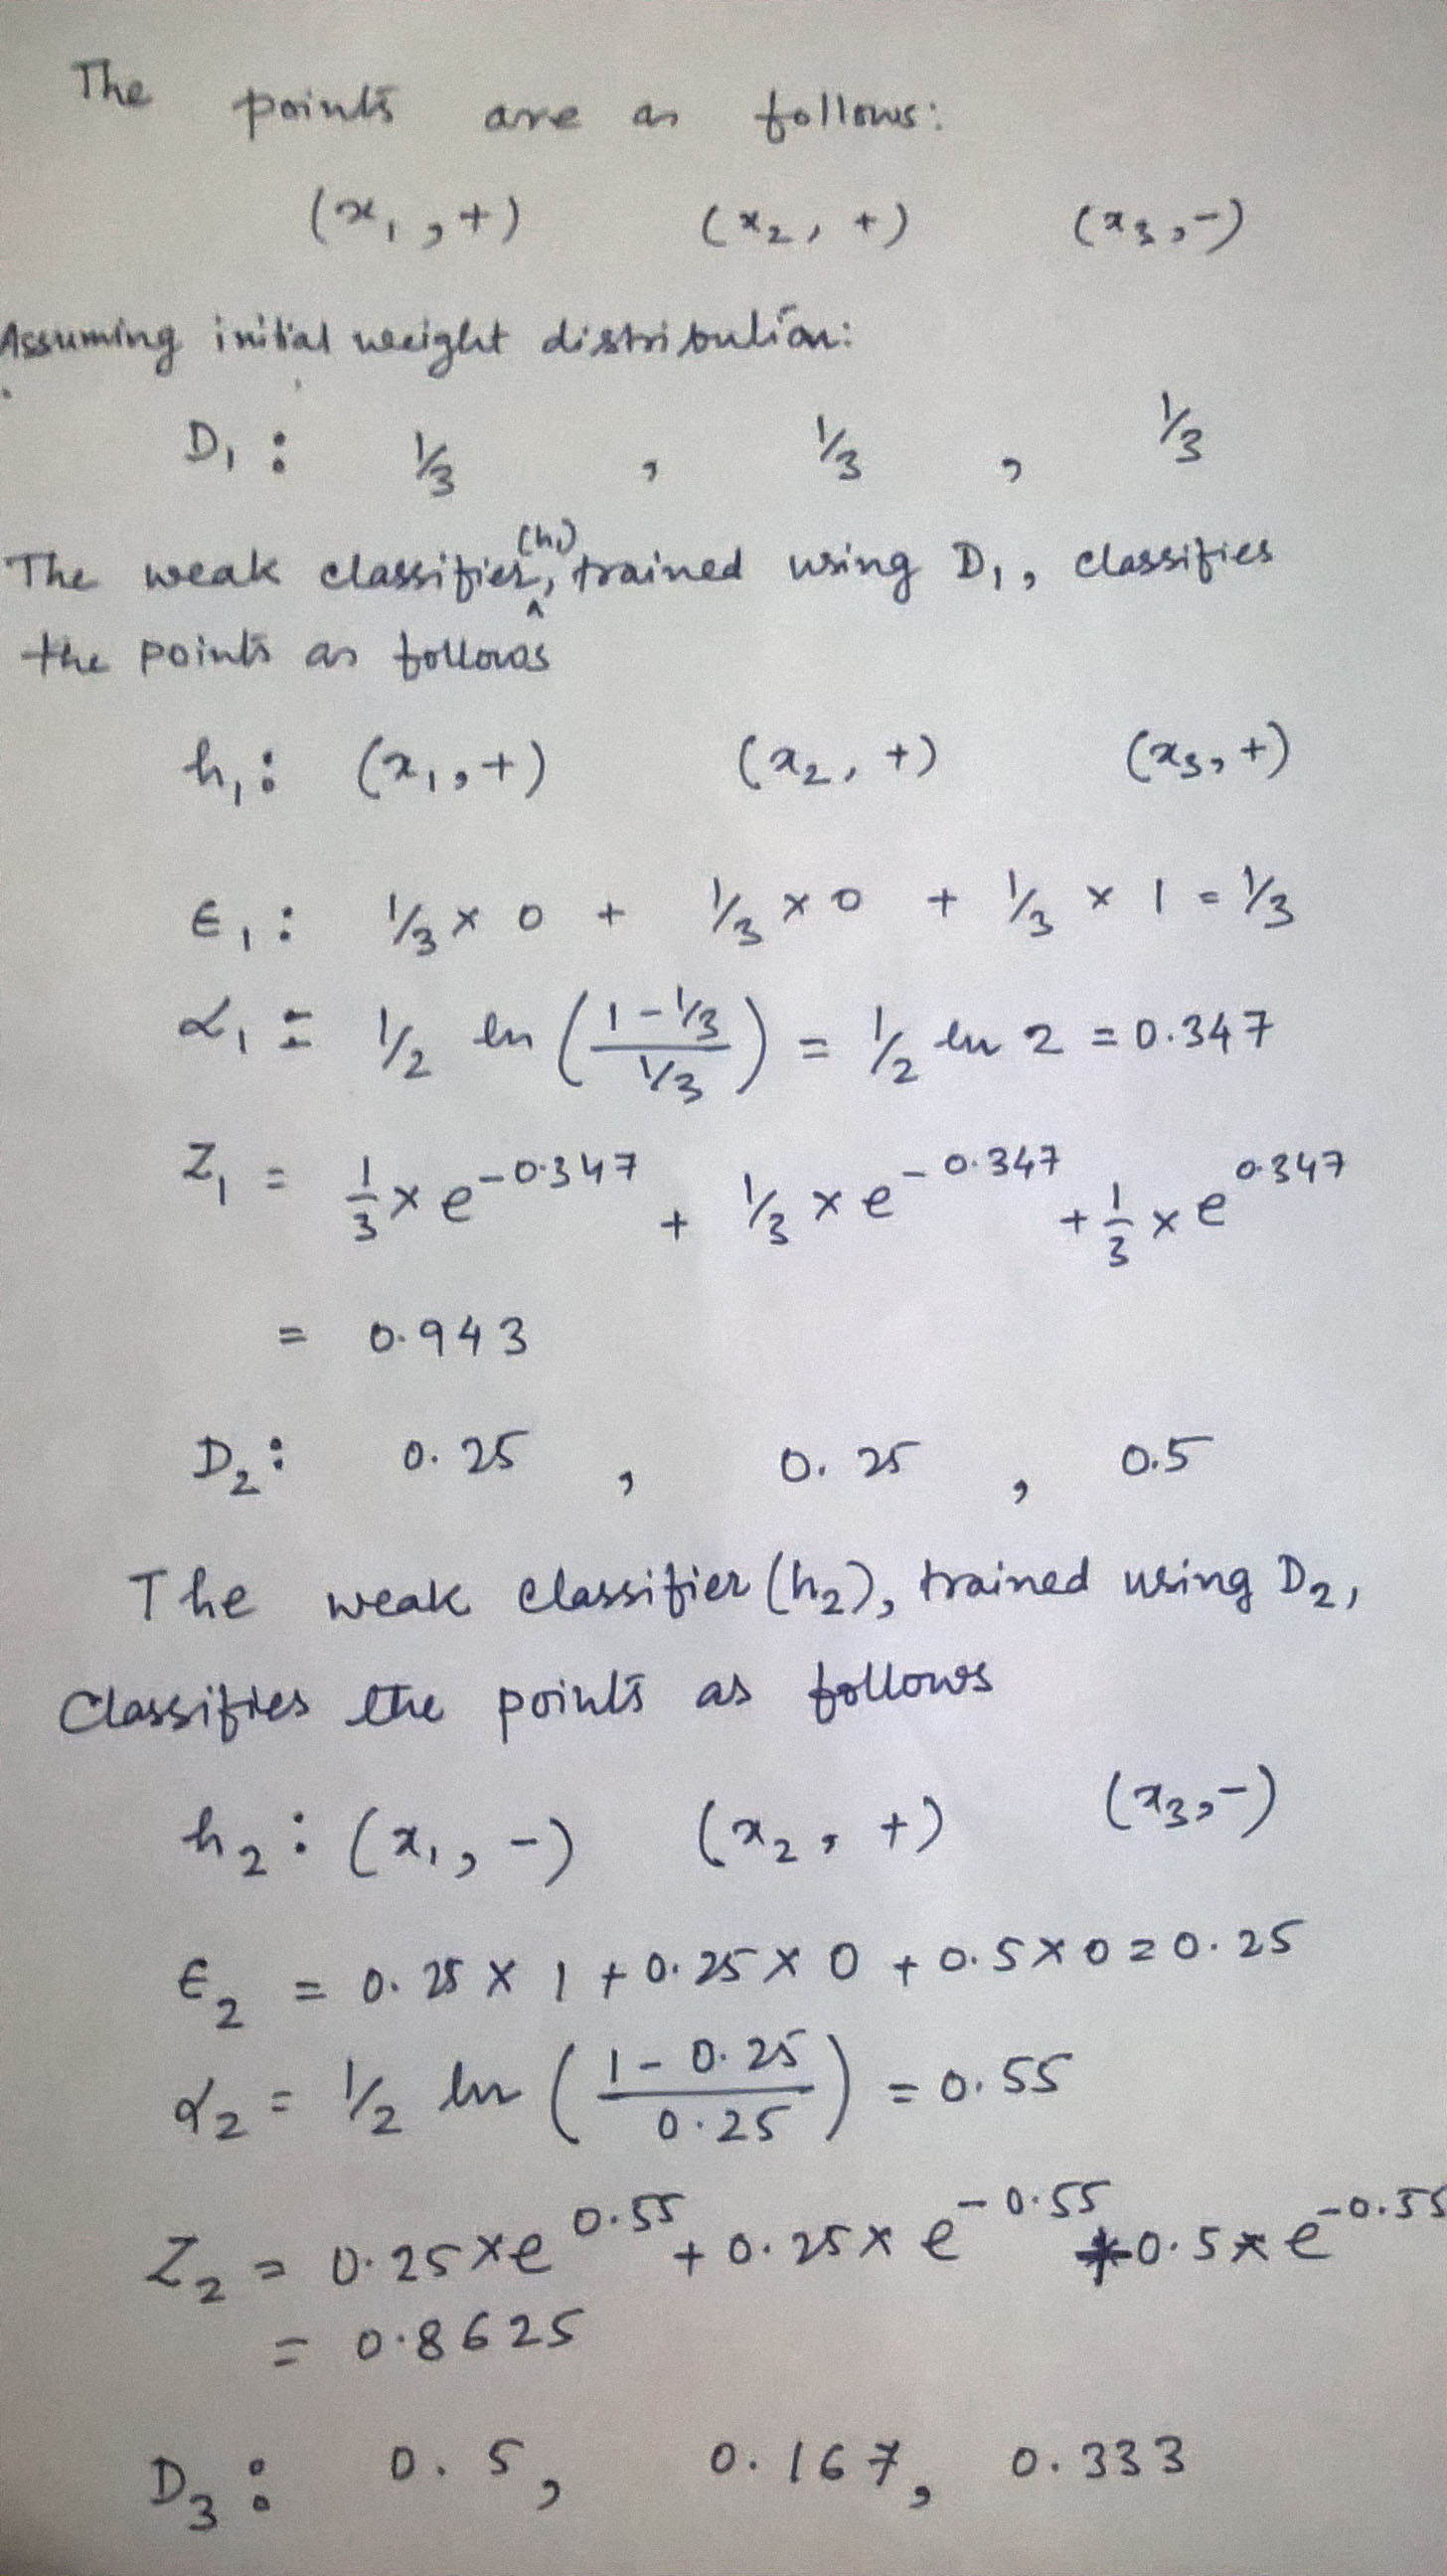 The points are as follows:
(x₁, +) (x₂, +) (x₃, -)
Assuming initial weight distribution:
D₁ : 1/3 , 1/3 , 1/3
The weak classifier (h₁), trained using D₁, classifies
the points as follows
h₁ : (x₁, +) (x₂, +) (x₃, +)
ϵ₁ : 1/3 × 0 + 1/3 × 0 + 1/3 × 1 = 1/3
α₁ = 1/2 ln ( (1 - 1/3) / (1/3) ) = 1/2 ln 2 = 0.347
Z₁ = 1/3 × e^(-0.347) + 1/3 × e^(-0.347) + 1/3 × e^(0.347)
= 0.943
D₂ : 0.25 , 0.25 , 0.5
The weak classifier (h₂), trained using D₂,
Classifies the points as follows
h₂ : (x₁, -) (x₂, +) (x₃, -)
ϵ₂ = 0.25 × 1 + 0.25 × 0 + 0.5 × 0 = 0.25
α₂ = 1/2 ln ( (1 - 0.25) / 0.25 ) = 0.55
Z₂ = 0.25 × e^(0.55) + 0.25 × e^(-0.55) + 0.5 × e^(-0.55)
= 0.8625
D₃ : 0.5, 0.167, 0.333